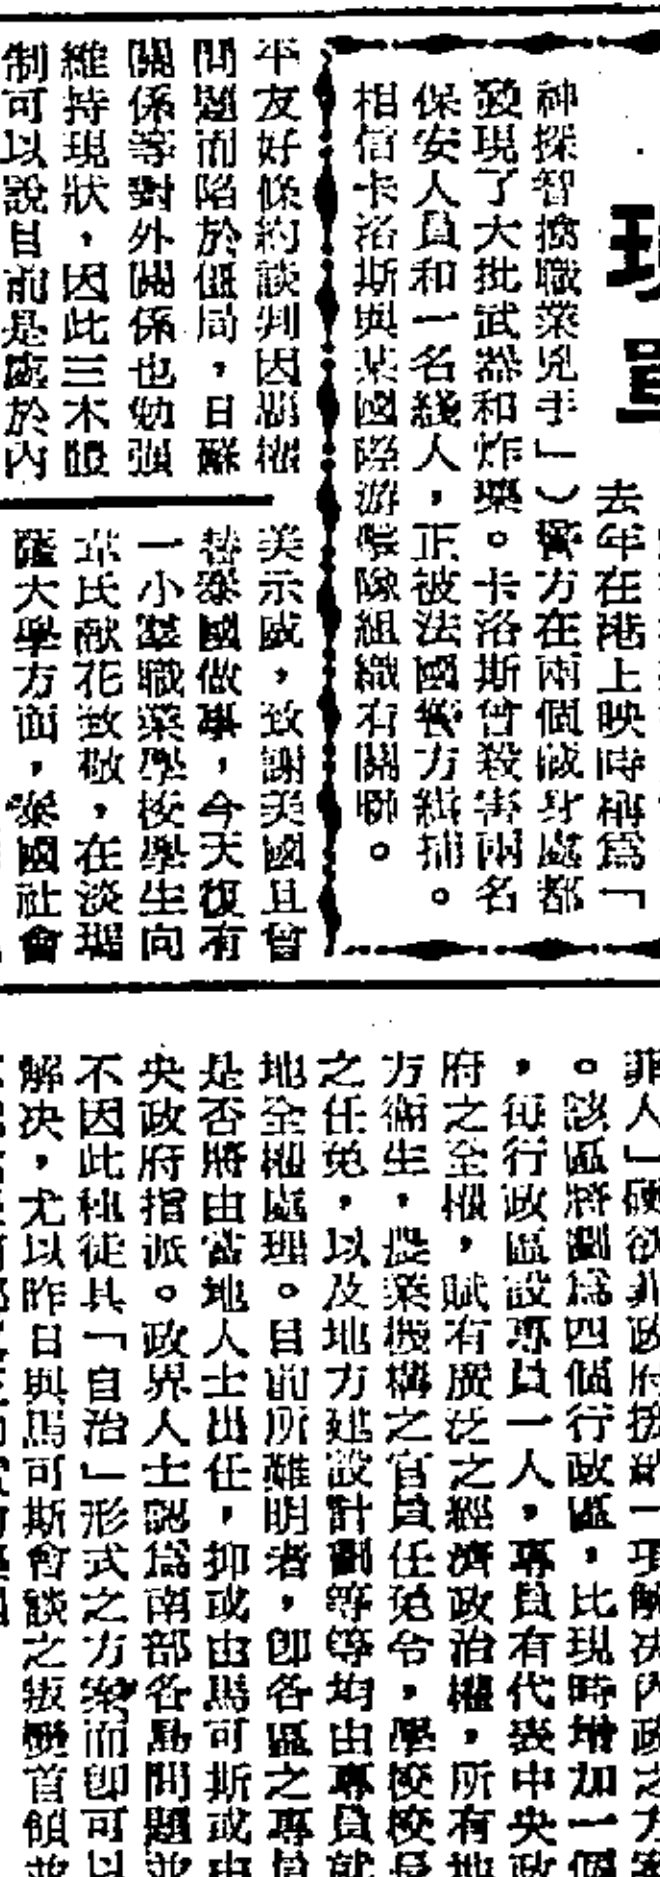 現
單
去年在港上映時稱爲「
神探智擒職業兇手」）警方在兩個藏身處都
發現了大批武器和炸藥。卡洛斯曾殺害兩名
保安人員和一名綫人，正被法國警方緝捕。
相信卡洛斯與某國際游擊隊組織有關聯。
平友好條約談判因霸權
問題而陷於僵局，日蘇
關係等對外關係也勉强
維持現狀，因此三木體
制可以說目前是處於內
美示威，致謝美國且曾
替泰國做事，今天復有
一小羣職業學校學生向
韋氏献花致敬，在淡瑪
薩大學方面，泰國社會
菲人」硬欲菲政府接納一項解决內政之方案
。該區將劃爲四個行政區，比現時增加一個
，每行政區設專員一人，專員有代表中央政
府之全權，賦有廣泛之經濟政治權，所有地
方衞生，農業機構之官員任免令，學校校長
之任免，以及地方建設計劃等等均由專員就
地全權處理。目前所難明者，卽各區之專員
是否將由當地人士出任，抑或由馬可斯或中
央政府指派。政界人士認爲南部各島問題並
不因此種徒具「自治」形式之方案而卽可以
解决，尤以昨日與馬可斯會談之叛變首領並